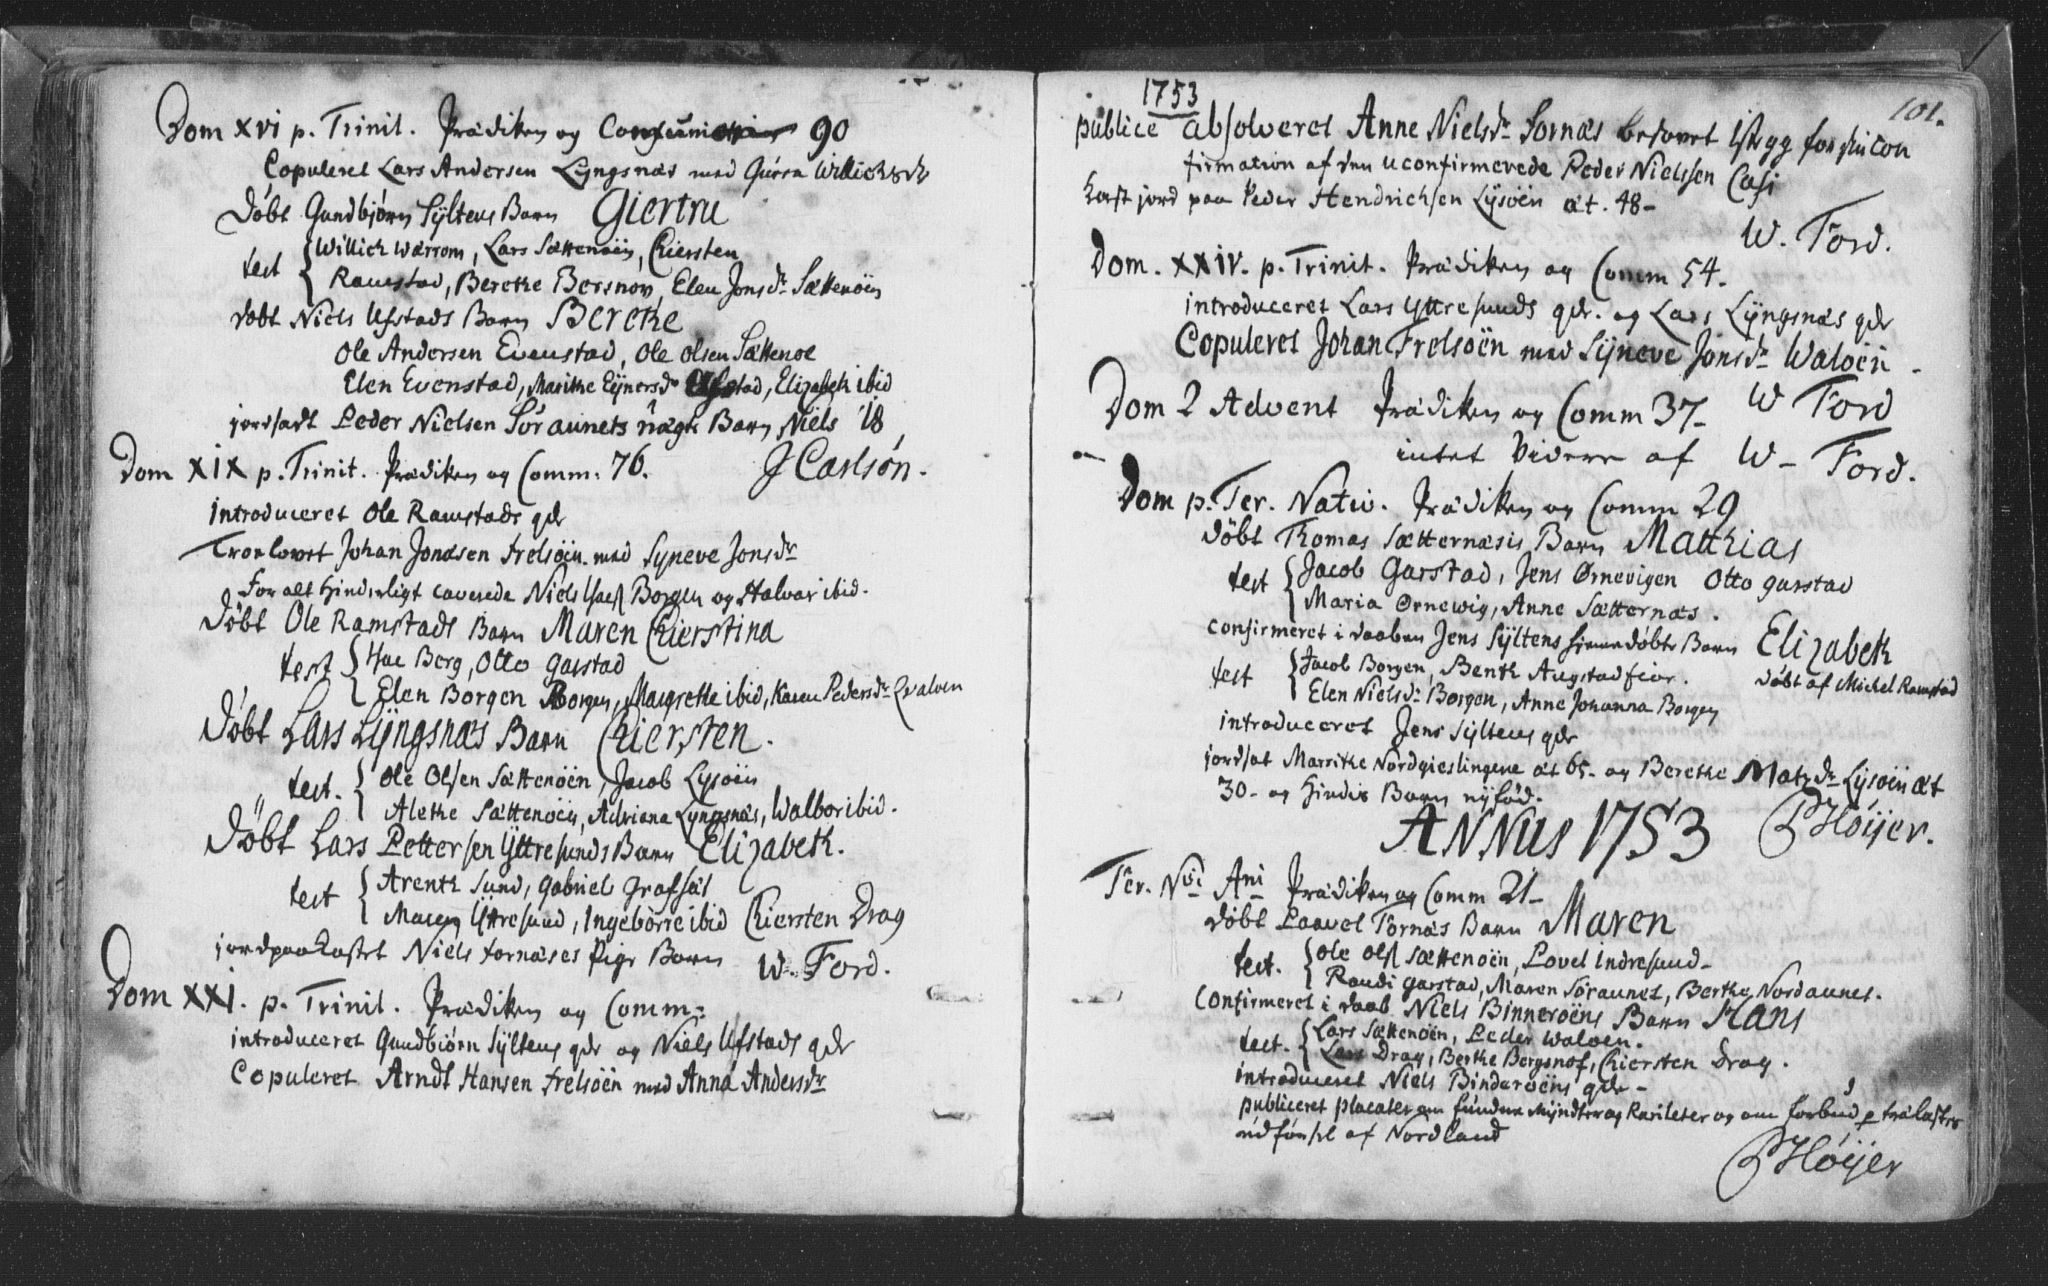 Dom XVI p. Trinit. Prædiken og Communion 90
Copuleret Lars Andersen Lyngsnæs med Gurra Willichsdr
Döbt Gundbjörn Syltens Barn Giertru
test Willich Wærrom, Lars Sættenöen, Chiersten
Ramstad, Berethe Bersnov, Elen Jonsdr Sættenöen
döbt Niels Ufstads Barn Berethe
Ole Andersen Evenstad, Ole Olsen Sættenoe
Elen Evenstad, Marithe Eynersdr Ufstad, Elizabeth ibid
jordsadt Peder Nielsen Söraunets ægte Barn Niels 18
Dom XIX p. Trinit. Prædiken og Comm: 76. J Carlsón.
introduceret Ole Ramstads qdr
Troelovet Johan Jonæsen Frelsöen med Syneve Jonsdr
For alt Hinderligt caverede Niels Isach Borgen og Halvar ibid.
Döbt Ole Ramstads Barn Maren Chierstina
test Hae Berg, Otto Garstad
Elen Borgen Borgen, Margrethe ibid, Karen Pedersdr Qvalven
Döbt Lars Lyngsnæs Barn Chiersten.
test. Ole Olsen Sættenöen, Jacob Lysöen
Alethe Sættenöen, Adriana Lyngsnæs, Walbor ibid.
Döbt Lars Pettersen Yttresunds Barn Elizabeth.
test Arenth Sund, Gabriel Grafsæt
Maren Yttresund, Ingeborre ibid Chiersten Drag
jordpaakastet Niels Fornæses Pige Barn W. Ford.
Dom XXI. p. Trinit. Prædiken og Comm:
introduceret Gundbiörn Syltens qdr og Niels Ufstads qdr
Copuleret Arndt Hansen Frelsöen med Anna Andersdr
1753
101.
publice absolveret Anne Nielsdr Fornæs besovet for sin con
firmation af den uconfirmerede Peder Nielssen
Kast jord paa Peder Hendrichsen Lysöen æt. 48-
W. Ford.
Dom. XXIV. p. Trinit. Prædiken og Comm 54.
introduceret Lars Yttresunds qdr. og Lars Lyngsnæs qdr
Copuleret Johan Frelsöen med Syneve Jonsdr Waloën
Dom 2 Advent Prædiken og Comm 37- W Ford
intet Videre af W- Ford.
Dom p. Fer. Nativ. Prædiken og Comm 29
döbt Thomas Sætternæsis Barn Matthias
test Jacob Garstad, Jens Örnevigen Otto Garstad
Maria Örnewig, Anne Sætternæs.
confirmeret i daaben Jens Syltens hjemmedöbte Barn Elizabeth
test Jacob Borgen, Benth Augstadfior. döbt af Michel Ramstad
Elen Nielsdr Borgen, Anne Johanna Borgen
introduceret Jens Syltens qdr
jordsat Marrithe Nordgieslingene æt 65- og Berethe Matzdr Lysöen æt
30- og Hindis Barn nyföd.
ANNUS 1753 P Höijer.
Fer. Nvi Ani Prædiken og Comm 21-
döbt Paavel Tornæs Barn Maren
test. Ole Ols Sættenoën, Povel Indresund-
Randi Garstad, Maren Söraunet, Berthe Nordaunet.
confirmeret i daab Niels Binneröens Barn Hans
test. Lars Sættenöen, Peder Waloen.
Lars Drag, Berthe Bergsnof, Chiersten Drag.
introduceret Niels Binderöens qdr-
publiceret placater om og og om Forbud
udförsel af Nordland
P Höijer